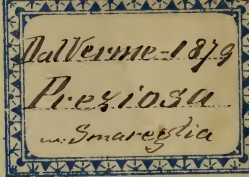 Dal Verme - 1879
Preziosa
m: Smareglia